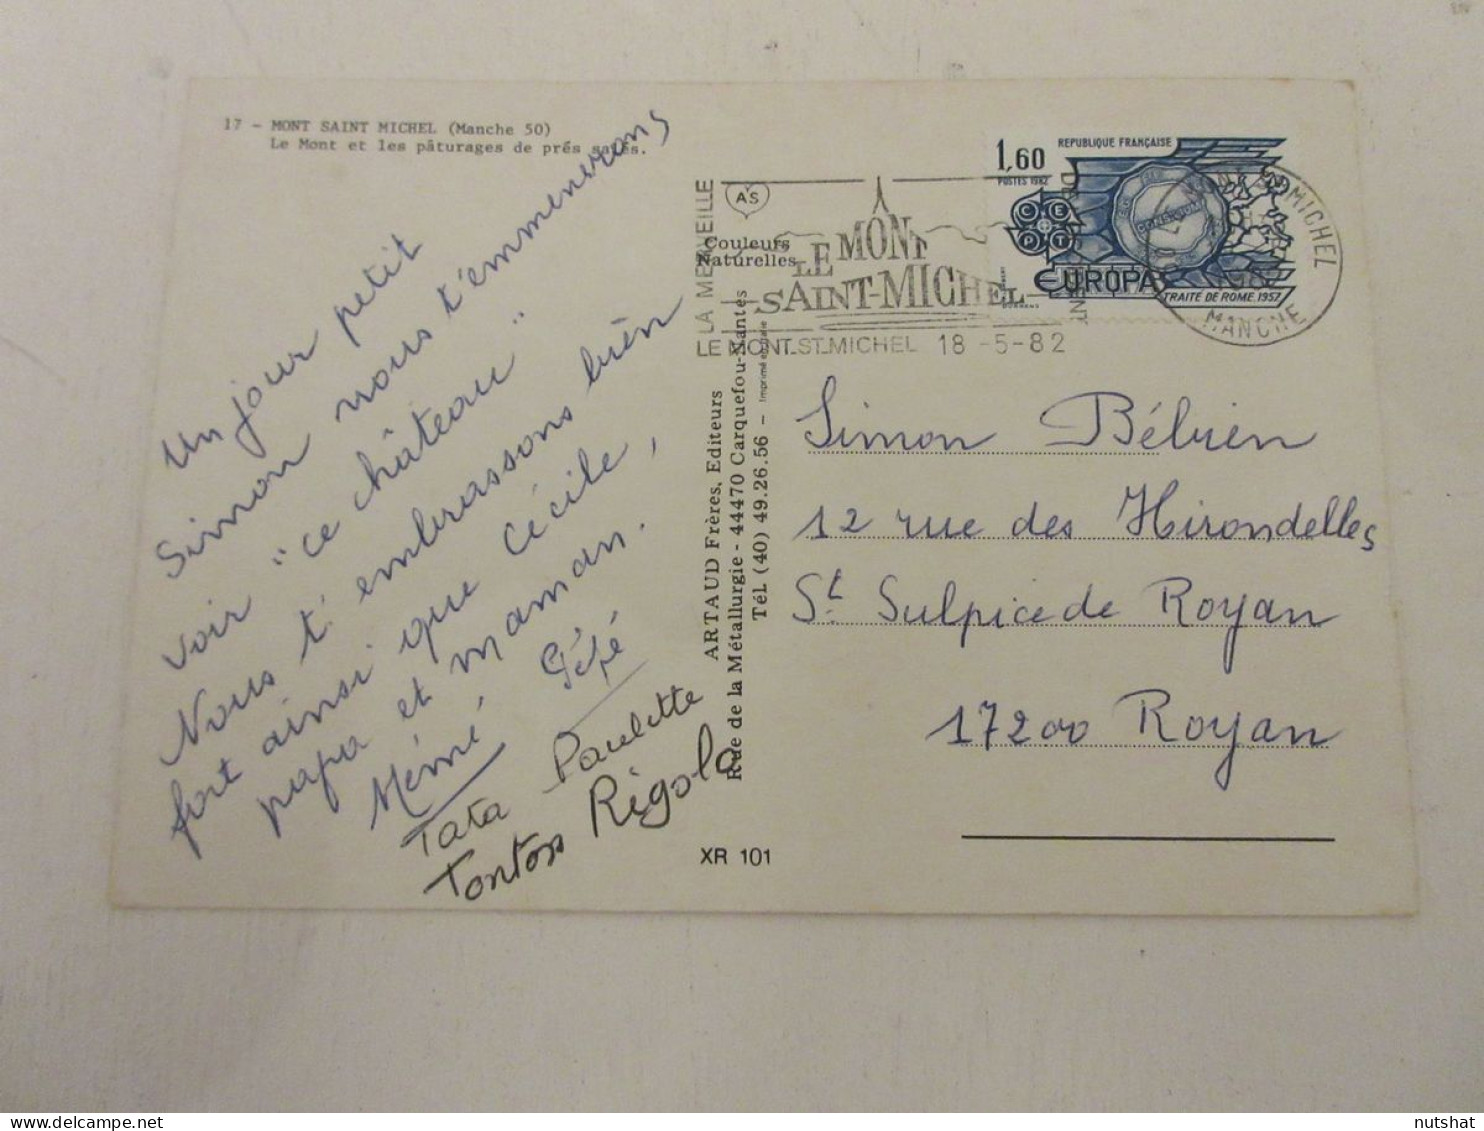 17 - MONT SAINT MICHEL (Manche 50)
Le Mont et les pâturages de prés salés.
Un jour petit
Simon nous t'emmenerons
voir "ce château"
Nous t'embrassons bien
fort ainsi que Cécile,
papa et maman.
Mémé Pépé
Tata Paulette
Tonton Rigolo
AS
Couleurs
Naturelles
ARTAUD Frères, Editeurs
Rue de la Métallurgie - 44470 Carquefou-Nantes
Tél. (40) 49.26.56 - Imprimé en
XR 101
LA MERVEILLE
LE MONT
SAINT-MICHEL
LE MONT-ST-MICHEL 18-5-82
1,60
REPUBLIQUE FRANÇAISE
POSTES 1982
CEPT
EUROPA
TRAITÉ DE ROME 1957
MICHEL
MANCHE
Simon Bélvien
12 rue des Hirondelles
St Sulpice de Royan
17200 Royan
nutshat